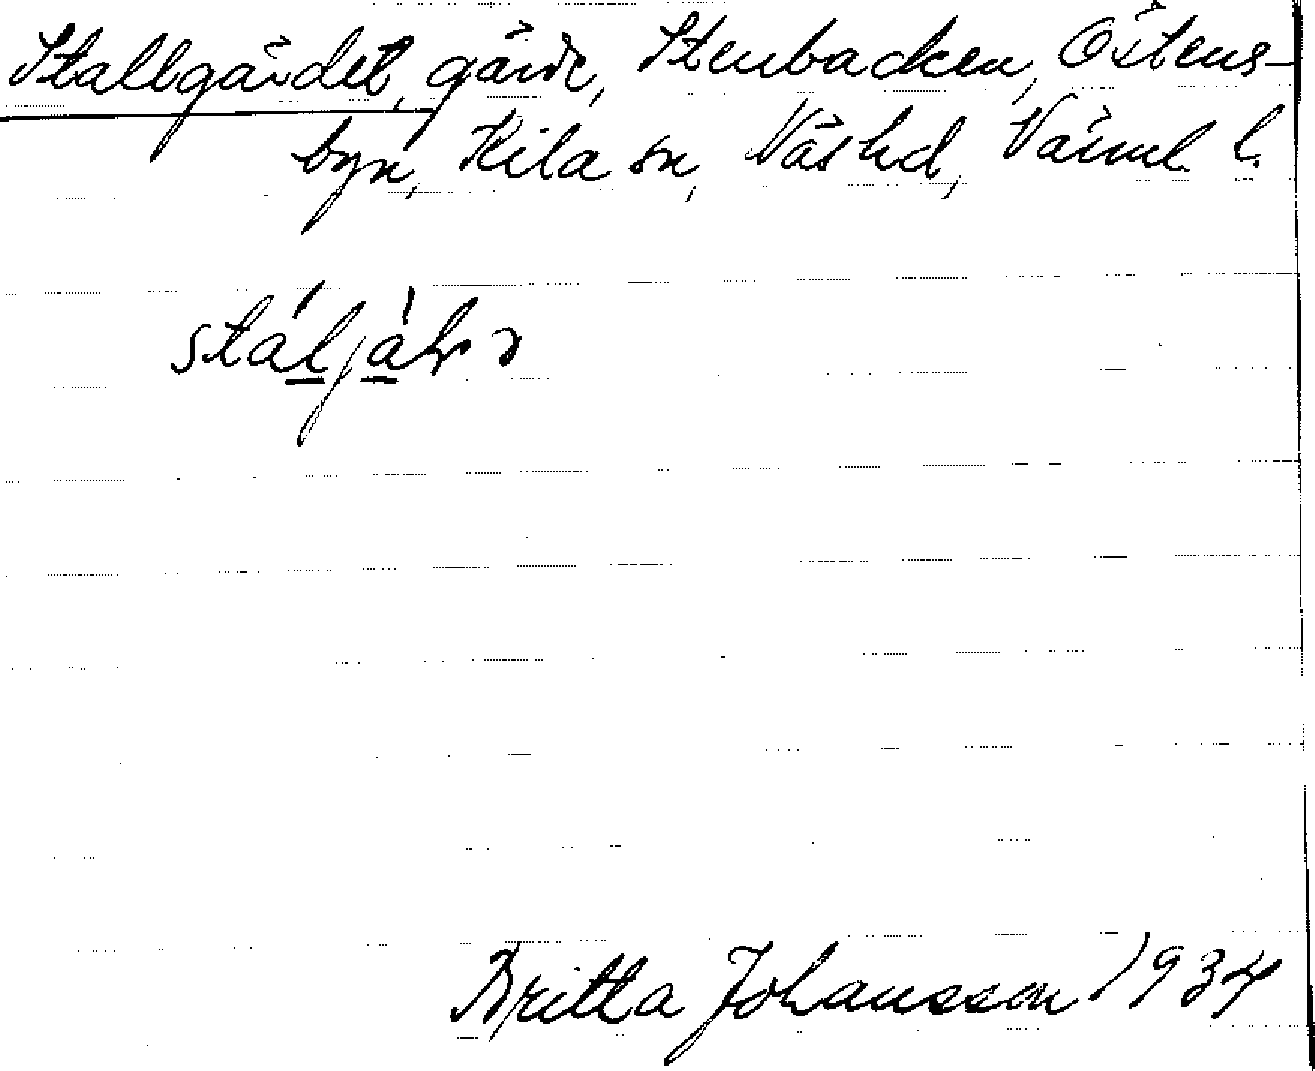 Stallgärdet, gärde, Stenbacken, Östens-
byn, Kila sn, Näs hd, Värml. l.
Britta Johansson 1934